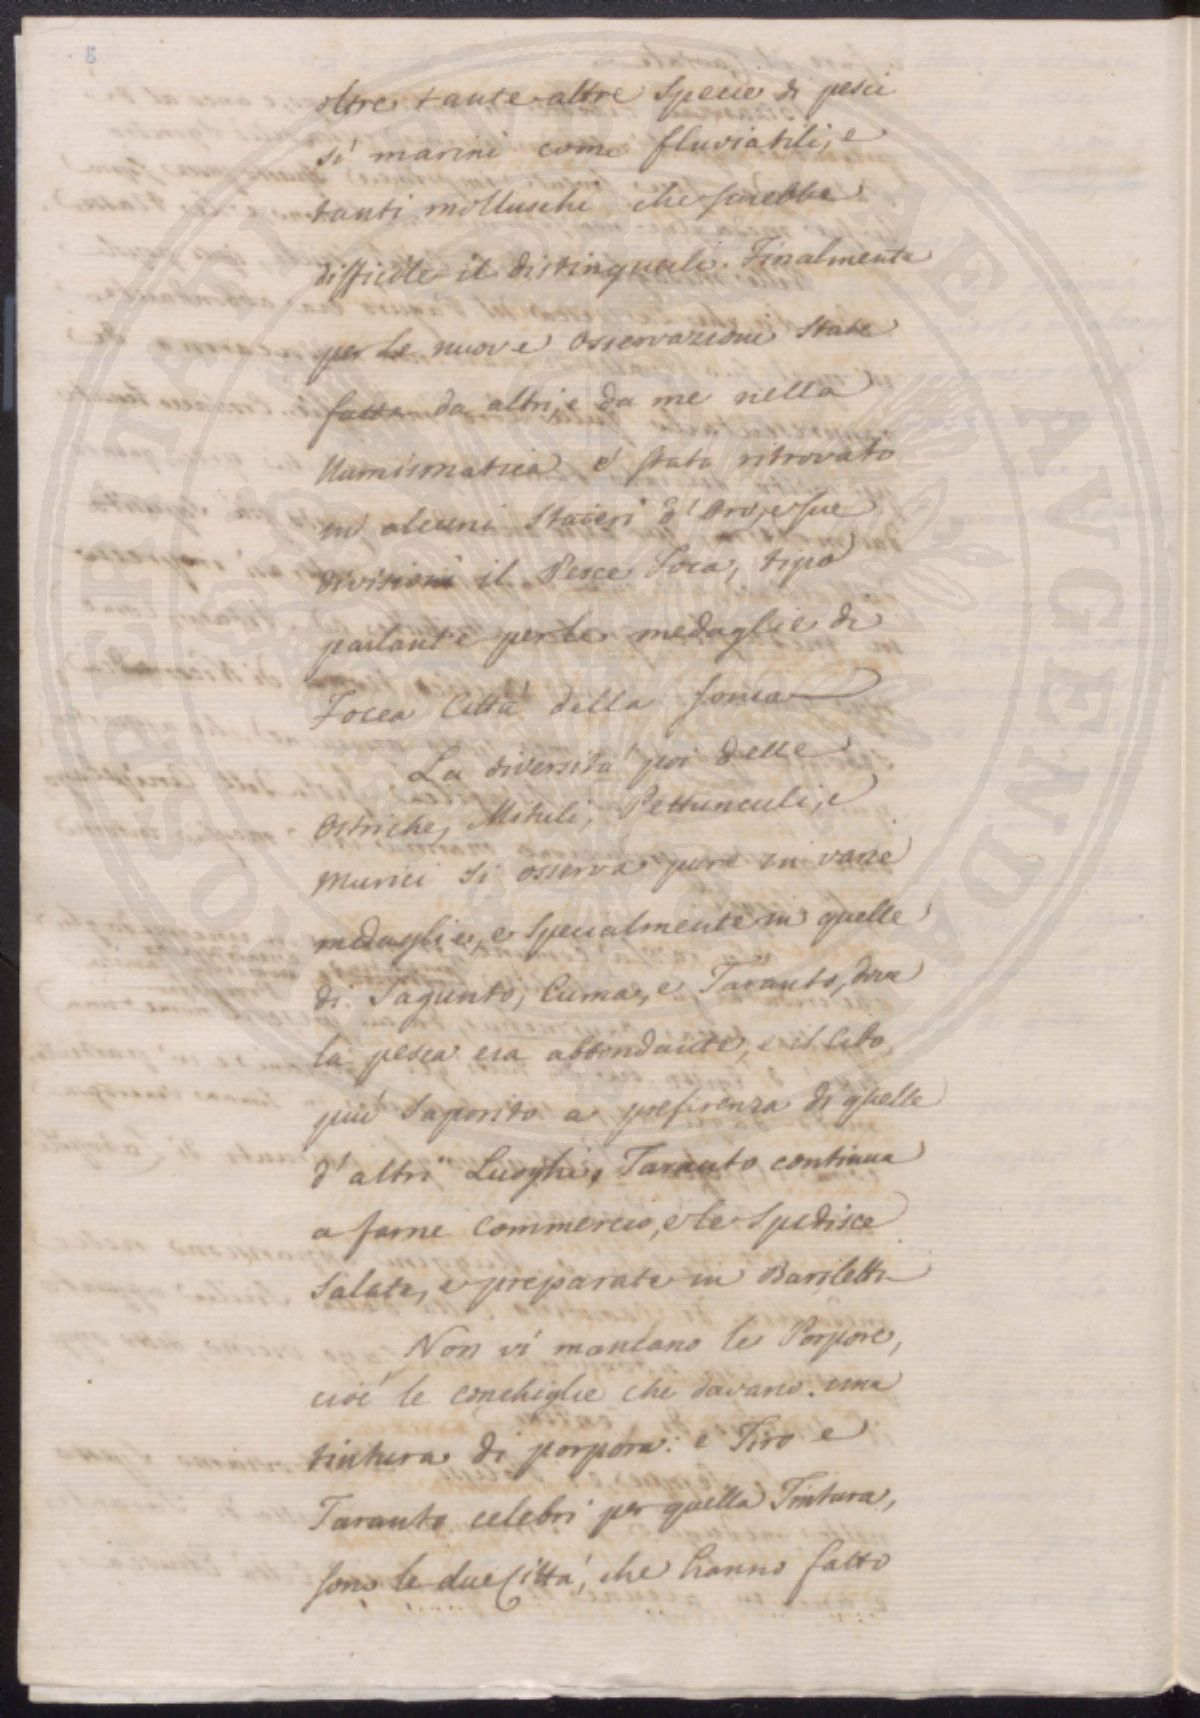 oltre tante altre Specie di pesci
sì marini come fluviatili, e
tanti mollusche che sarebbe
difficile il distinguerli. Finalmente
per le nuove osservazioni State
fatte da altri, e da me nella
Numismatica è stato ritrovato
in alcuni Stateri d'Oro, e sue
divisioni il Pesce Foca, tipo
parlante per le medaglie di
Focea Città della Jonia
La diversità poi delle
Ostriche, Mituli, Pettunculi, e
Murici si osserva pure in varie
medaglie, e Specialmente in quelle
di Sagunto, Cuma, e Taranto, dove
la pesca era abbondante, e il Cibo
più Saporito a preferenza di quelle
d'altri Luoghi, Taranto continua
a farne Commercio, e le Spedisce
Salate, e preparate in Bariletti
Non vi mancano le Porpore,
cioè le conchiglie che davano una
tintura di porpora: e Tiro e
Taranto celebri per quella Tintura,
sono le due Città, che hanno fatto
OSPERITATI PVBLICAE AVGENDAE